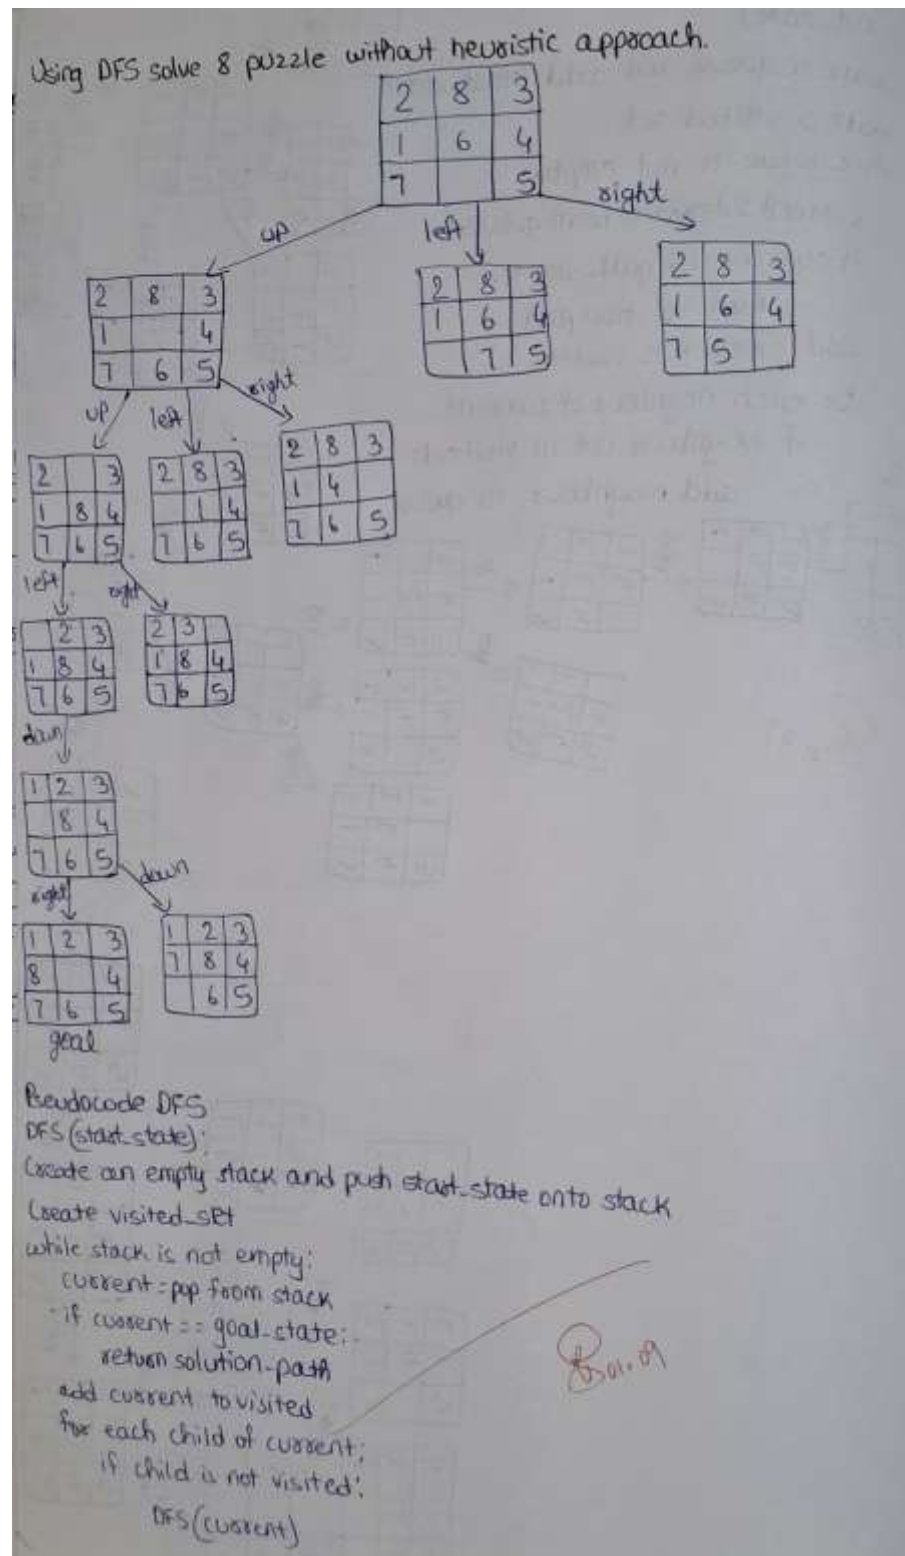 Using DFS solve 8 puzzle without heuristic approach.
2 8 3
1 6 4
7 5
up left right
2 8 3
1 4
7 6 5
2 8 3
1 6 4
7 5
2 8 3
1 6 4
7 5
up left right
2 3
1 8 4
7 6 5
2 8 3
1 4
7 6 5
2 8 3
1 4
7 6 5
left right
2 3
1 8 4
7 6 5
2 3
1 8 4
7 6 5
down
1 2 3
8 4
7 6 5
right down
1 2 3
8 4
7 6 5
goal
1 2 3
7 8 4
6 5
Pseudocode DFS
DFS(start_state):
Create an empty stack and push start_state onto stack
Create visited_set
while stack is not empty:
current = pop from stack
if current == goal_state:
return solution_path
add current to visited
for each child of current:
if child is not visited:
DFS(current)
01.09